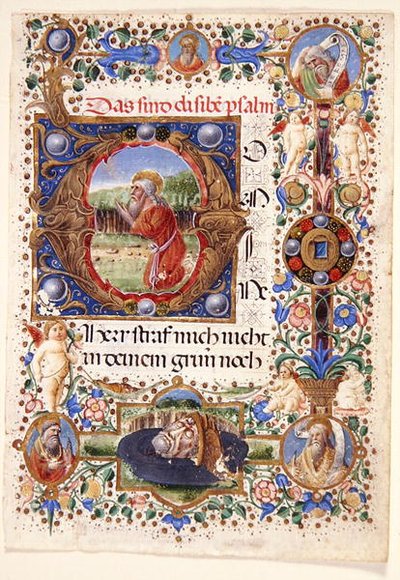 Das sind di sibē psalm
D
O
M
I
NE
Herr straf mich nicht
in deinem grim̄ noch